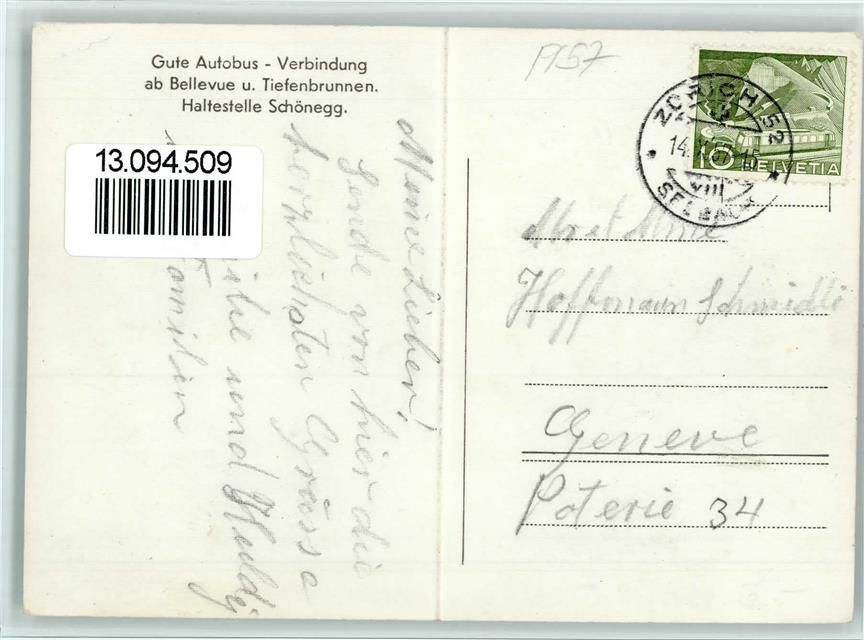 Gute Autobus - Verbindung
ab Bellevue u. Tiefenbrunnen.
Haltestelle Schönegg.
1957
13.094.509
ZÜRICH 52
VIII
SEEBACH
10 HELVETIA
Meine Lieben!
Sende von hier die
herzlichsten Grüsse
und
Familien
M et Mme
Hoffmann Schmidli
Geneve
Poterie 34